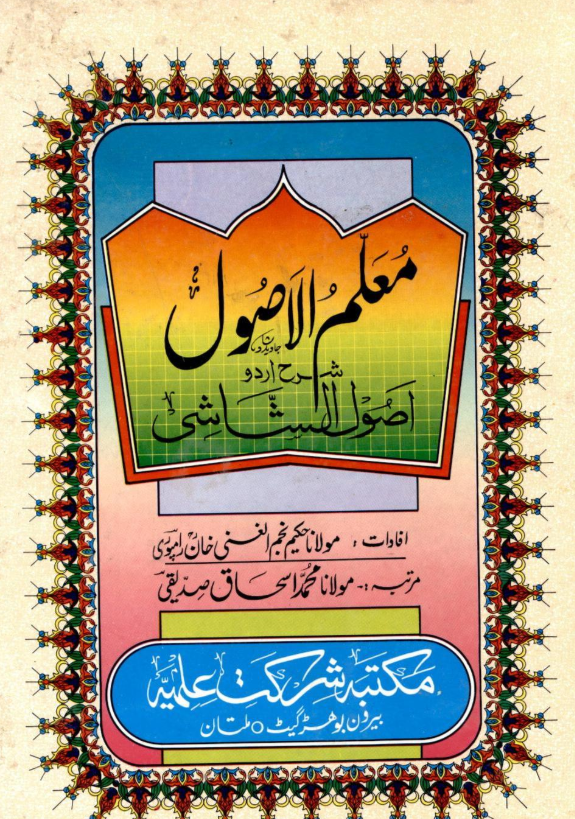 مُعَلِّمُ الاَصُول
شرح اردو
اصُولُ الشَّاشِی
افادات : مولانا حکیم نجم الغنی خان رامپوری
مرتبہ :- مولانا محمد اسحاق صدیقی
مکتبہ شرکت علمیہ
بیرون بوھڑ گیٹ ○ ملتان